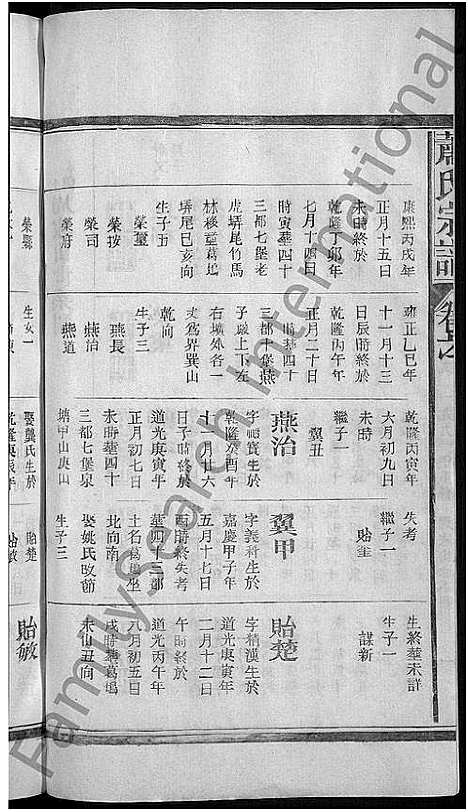 蕭氏宗譜
康熙丙戌年
正月十五日
未時終於
乾隆丁卯年
七月十四日
時寅葬四十
三都七堡老
虎塀尾竹馬
林移葬葛塢
塀尾巳亥向
生子五
榮璽
榮按
榮司
榮府
雍正乙巳年
十一月十三
日辰時終於
乾隆丙午年
正月二十日
時葬四十
三都十堡燕
子崴上下左
右墻外各一
丈為界巽山
乾向
生子三
燕長
燕治
燕道
乾隆丙寅年
六月初九日
未時
繼子一
翼丑
燕治
字福寶生於
乾隆癸酉年
十一月廿六
日子時終於
道光庚寅年
正月初七日
戌時葬四十
三都七堡泉
塘甲山庚山
失考
繼子一
貽奎
翼甲
字義科生於
嘉慶甲子年
五月十七日
酉時終失考
葬四十三都
土名葛塢坐
北向南
娶姚氏改節
生子三
生終葬未詳
生子一
謀新
貽楚
字精漢生於
道光庚寅年
二月十二日
午時終於
道光丙午年
八月初五日
戌時葬葛塢
未山丑向
榮縣
生女一
娶龔氏生於
乾隆庚辰年
貽楚
貽敏
貽敏
FamilySearch International